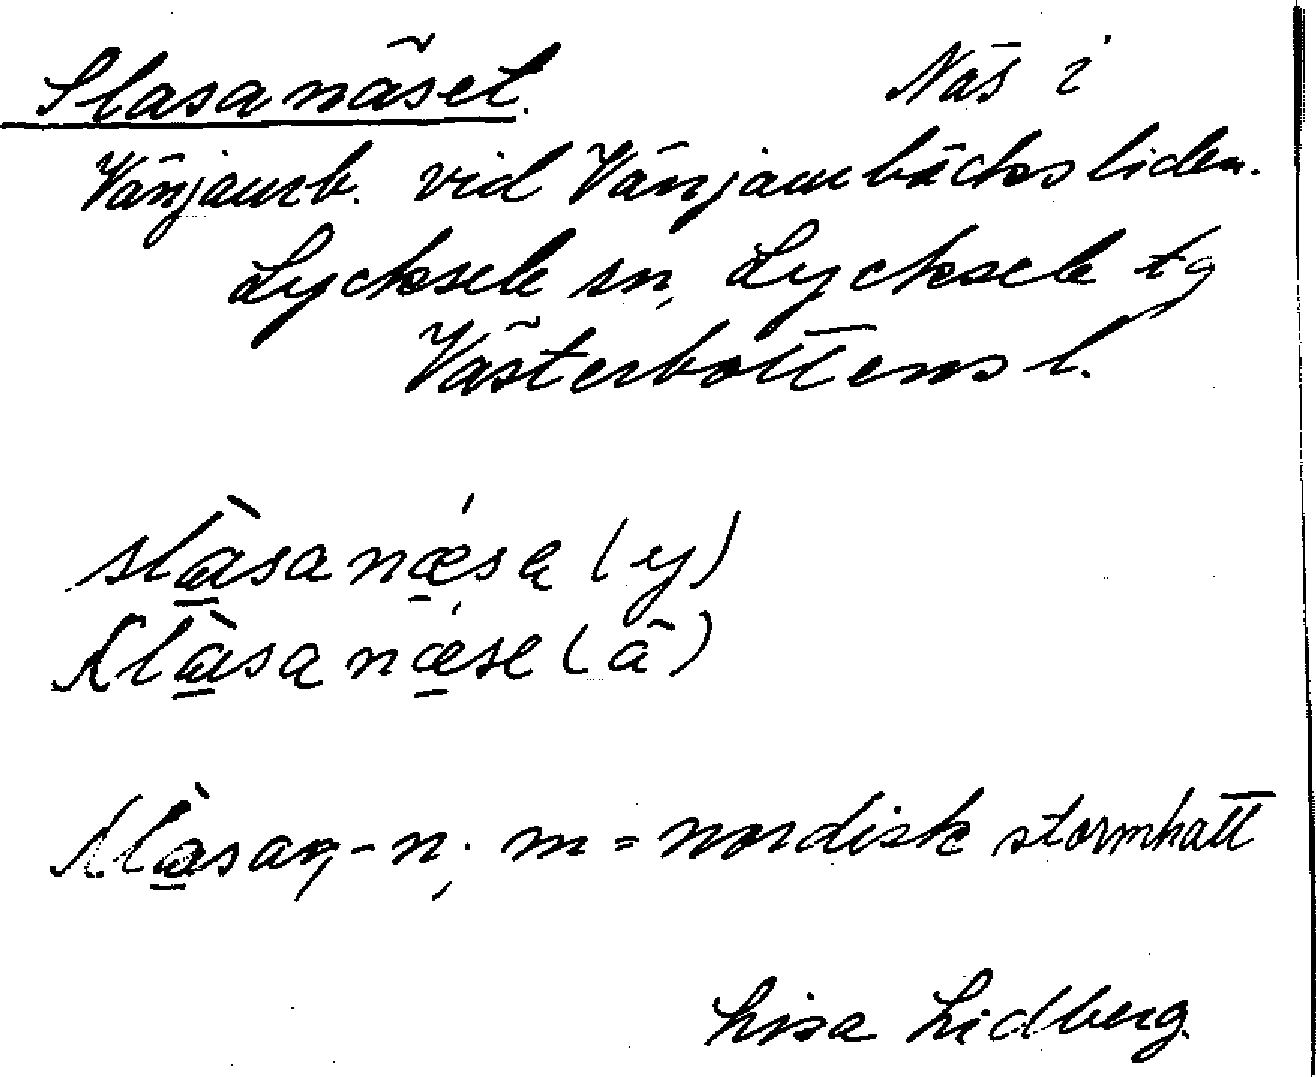 Slasanäset. Näs i
Vänjaurb. vid Vänjaurbäcksliden.
Lycksele sn, Lycksele tg
Västerbottens l.
slàsanǽsa (y)
slàsanǽse (ä)
slàsan, -n, m = nordisk stormhatt
Lisa Lidberg.